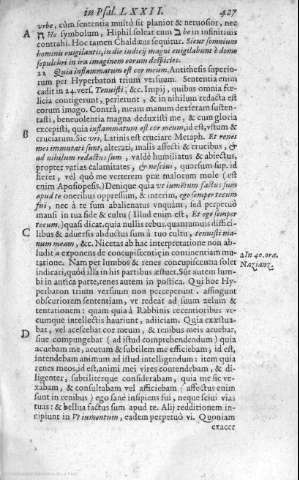 in Psal. LXXII. 427
urbe, cùm sententia multò sit planior & neruosior, nec
A symbolum, Hiphil soleat cum be in infinitiuis
contrahi. Hoc tamen Chaldæus sequitur. Sicut somnium
hominis euigilantis, in die iudicij magni euigilabunt è domo
sepulchri in ira imaginem eorum despicies.
22 Quia inflammatum est cor meum. Antithesis superiorum
per Hyperbaton trium versuum. Sententia enim
redit in 24. vers. Tenuisti, &c. Impij, quibus omnia fœlicia
contigerunt, perierunt, & in nihilum redacta est
eorum imago. Contrà, manum meam dexteram sustentasti,
beneuolentia magna deduxisti me, & cum gloria
B excepisti, quia inflammatum est cor meum, id est, vstum &
cruciatum. Sic vri, Latinis est cruciare Metaph. Et renes
mei immutati sunt, alterati, malis affecti & crucibus, &
ad nihilum redactus sum, valdè humiliatus & abiectus,
propter varias calamitates, & nesciui, quorsum hæc
, vel quò me verterem præ malorum mole (est
enim Aposiopesis.) Denique quia vt iumentum factus sum
apud te oneribus oppressum, & interim, ego semper tecum
fui, nec à te sum abalienatus vnquam, sed perpetuò
mansi in tua fide & cultu (Illud enim est, Et ego semper
tecum,) quasi dicat. quia nullis rebus quantumuis difficilibus
C & aduersis abductus sum à tuo cultu, tenuisti manum
meam, &c. Nicetas ab hac interpretatione non abludit
a exponens de concupiscentijs in concinentiam mutatione. a In 40. ora. Nazianz.
Nam per lumbos & renes concupiscentia solet
indicari, quòd illa in his partibus æstuet. Sūt autem lumbi
in antica parte, renes autem in postica. Qui hoc Hyperbaton
trium versuum non perceperunt, assingunt
obscuriorem sententiam, vt redeat ad suum zelum &
tentationem: quam quia à Rabbinis recentioribus vtcumque
intellectis hauriunt, adijciam. Quia exacerbabat,
vel acescebat cor meum, & renibus meis acuebar,
D siue compungebar (ad istud comprehendendum) quia
acuebam me, acutum & subtilem me efficiebam, id est,
intendebam animum ad istud intelligendum: item quia
renes meos, id est, animi mei vires contendebam, & diligenter,
subtiliterque considerabam, quia me sic vexabam,
& consultabam vel afficiebam (affectus enim
sunt in renibus) ego sanè insipiens fui, neque sciui vias
tuas: & bellua factus sum apud te. Alij redditionem incipiunt
in Vt iumentum, eadem perpetuò vi. Quoniam
exacer